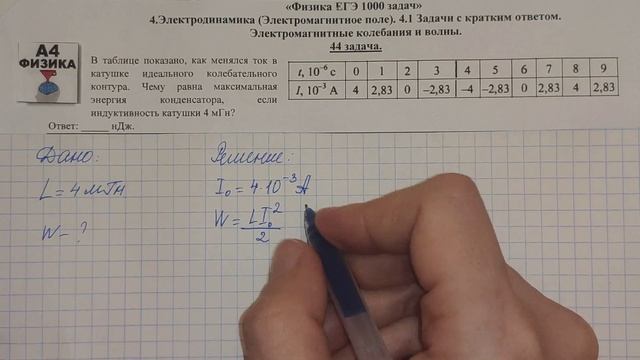 «Физика ЕГЭ 1000 задач»
4.Электродинамика (Электромагнитное поле). 4.1 Задачи с кратким ответом.
Электромагнитные колебания и волны.
44 задача.
А4
ФИЗИКА
В таблице показано, как менялся ток в
катушке идеального колебательного
контура. Чему равна максимальная
энергия конденсатора, если
индуктивность катушки 4 мГн?
Ответ: _____ нДж.
t, 10⁻⁶ с 0 1 2 3 4 5 6 7 8 9
I, 10⁻³ А 4 2,83 0 –2,83 –4 –2,83 0 2,83 4 2,83
Дано: Решение:
L = 4 мГн I₀ = 4·10⁻³ А
W – ? W = LI₀²/2